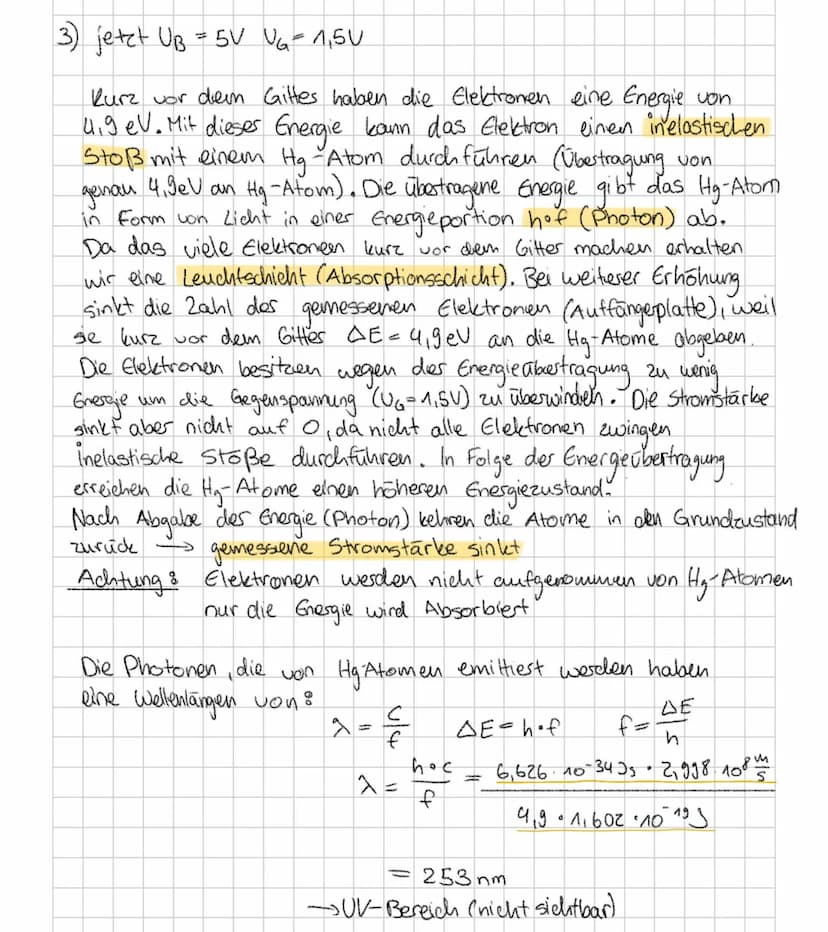 3) jetzt U_B = 5V U_G = 1,5V
Kurz vor dem Gitter haben die Elektronen eine Energie von
4,9 eV. Mit dieser Energie kann das Elektron einen inelastischen
Stoß mit einem Hg-Atom durchführen (Übertragung von
genau 4,9eV an Hg-Atom). Die übertragene Energie gibt das Hg-Atom
in Form von Licht in einer Energieportion h∘f (Photon) ab.
Da das viele Elektronen kurz vor dem Gitter machen erhalten
wir eine Leuchtschicht (Absorptionsschicht). Bei weiterer Erhöhung
sinkt die Zahl der gemessenen Elektronen (Auffängerplatte), weil
sie kurz vor dem Gitter ΔE = 4,9eV an die Hg-Atome abgeben.
Die Elektronen besitzen wegen der Energieübertragung zu wenig
Energie um die Gegenspannung (U_G=1,5V) zu überwinden. Die Stromstärke
sinkt aber nicht auf 0, da nicht alle Elektronen zwingen
inelastische Stöße durchführen. In Folge der Energeübertragung
erreichen die Hg-Atome einen höheren Energiezustand.
Nach Abgabe der Energie (Photon) kehren die Atome in den Grundzustand
zurück → gemessene Stromstärke sinkt
Achtung: Elektronen werden nicht aufgenommen von Hg-Atomen
nur die Energie wird Absorbiert
Die Photonen, die von Hg-Atomen emittiert werden haben
eine Wellenlängen von:
λ = c/f ΔE = h∘f f = ΔE/h
λ = h∘c/f = 6,626 · 10^-34 Js · 2,998 · 10^8 m/s / 4,9 · 1,602 · 10^-19 J
= 253 nm
→ UV-Bereich (nicht sichtbar)